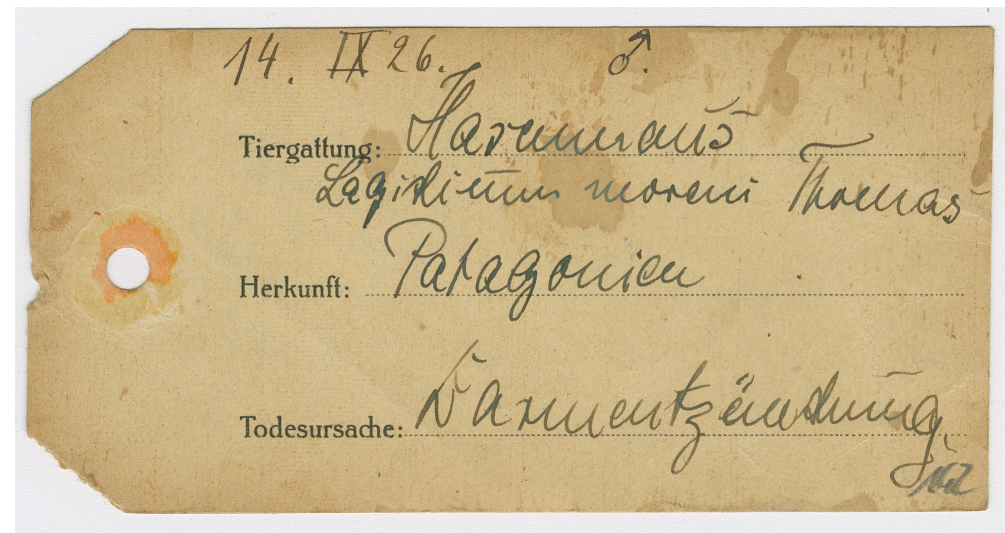 14. IX 26. ♂.
Tiergattung: Hasenmaus
Lagidium moreni Thomas
Herkunft: Patagonien
Todesursache: Darmentzündung.